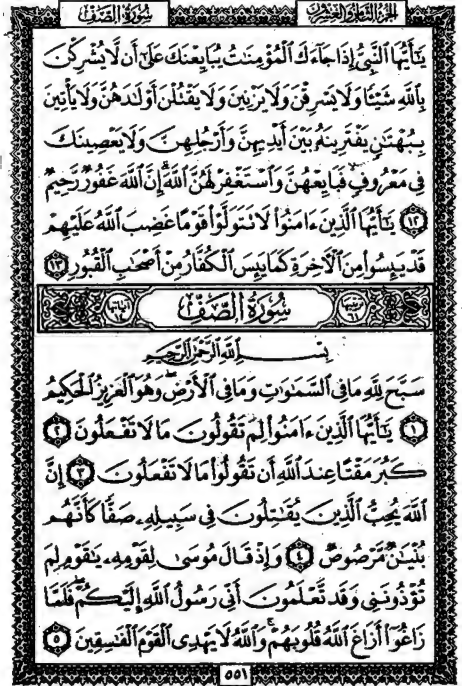 الجزء الثامن والعشرون سورة الصف
يَٰٓأَيُّهَا ٱلنَّبِىُّ إِذَا جَآءَكَ ٱلْمُؤْمِنَٰتُ يُبَايِعْنَكَ عَلَىٰٓ أَن لَّا يُشْرِكْنَ
بِٱللَّهِ شَيْـًٔا وَلَا يَسْرِقْنَ وَلَا يَزْنِينَ وَلَا يَقْتُلْنَ أَوْلَٰدَهُنَّ وَلَا يَأْتِينَ
بِبُهْتَٰنٍ يَفْتَرِينَهُۥ بَيْنَ أَيْدِيهِنَّ وَأَرْجُلِهِنَّ وَلَا يَعْصِينَكَ
فِى مَعْرُوفٍ ۙ فَبَايِعْهُنَّ وَٱسْتَغْفِرْ لَهُنَّ ٱللَّهَ ۖ إِنَّ ٱللَّهَ غَفُورٌ رَّحِيمٌ
١٢ يَٰٓأَيُّهَا ٱلَّذِينَ ءَامَنُوا۟ لَا تَتَوَلَّوْا۟ قَوْمًا غَضِبَ ٱللَّهُ عَلَيْهِمْ
قَدْ يَئِسُوا۟ مِنَ ٱلْءَاخِرَةِ كَمَا يَئِسَ ٱلْكُفَّارُ مِنْ أَصْحَٰبِ ٱلْقُبُورِ ١٣
سُورَةُ الصَّفِّ
بِسْمِ ٱللَّهِ ٱلرَّحْمَٰنِ ٱلرَّحِيمِ
سَبَّحَ لِلَّهِ مَا فِى ٱلسَّمَٰوَٰتِ وَمَا فِى ٱلْأَرْضِ ۖ وَهُوَ ٱلْعَزِيزُ ٱلْحَكِيمُ
١ يَٰٓأَيُّهَا ٱلَّذِينَ ءَامَنُوا۟ لِمَ تَقُولُونَ مَا لَا تَفْعَلُونَ ٢
كَبُرَ مَقْتًا عِندَ ٱللَّهِ أَن تَقُولُوا۟ مَا لَا تَفْعَلُونَ ٣ إِنَّ
ٱللَّهَ يُحِبُّ ٱلَّذِينَ يُقَٰتِلُونَ فِى سَبِيلِهِۦ صَفًّا كَأَنَّهُم
بُنْيَٰنٌ مَّرْصُوصٌ ٤ وَإِذْ قَالَ مُوسَىٰ لِقَوْمِهِۦ يَٰقَوْمِ لِمَ
تُؤْذُونَنِى وَقَد تَّعْلَمُونَ أَنِّى رَسُولُ ٱللَّهِ إِلَيْكُمْ ۖ فَلَمَّا
زَاغُوٓا۟ أَزَاغَ ٱللَّهُ قُلُوبَهُمْ ۚ وَٱللَّهُ لَا يَهْدِى ٱلْقَوْمَ ٱلْفَٰسِقِينَ ٥
٥٥١